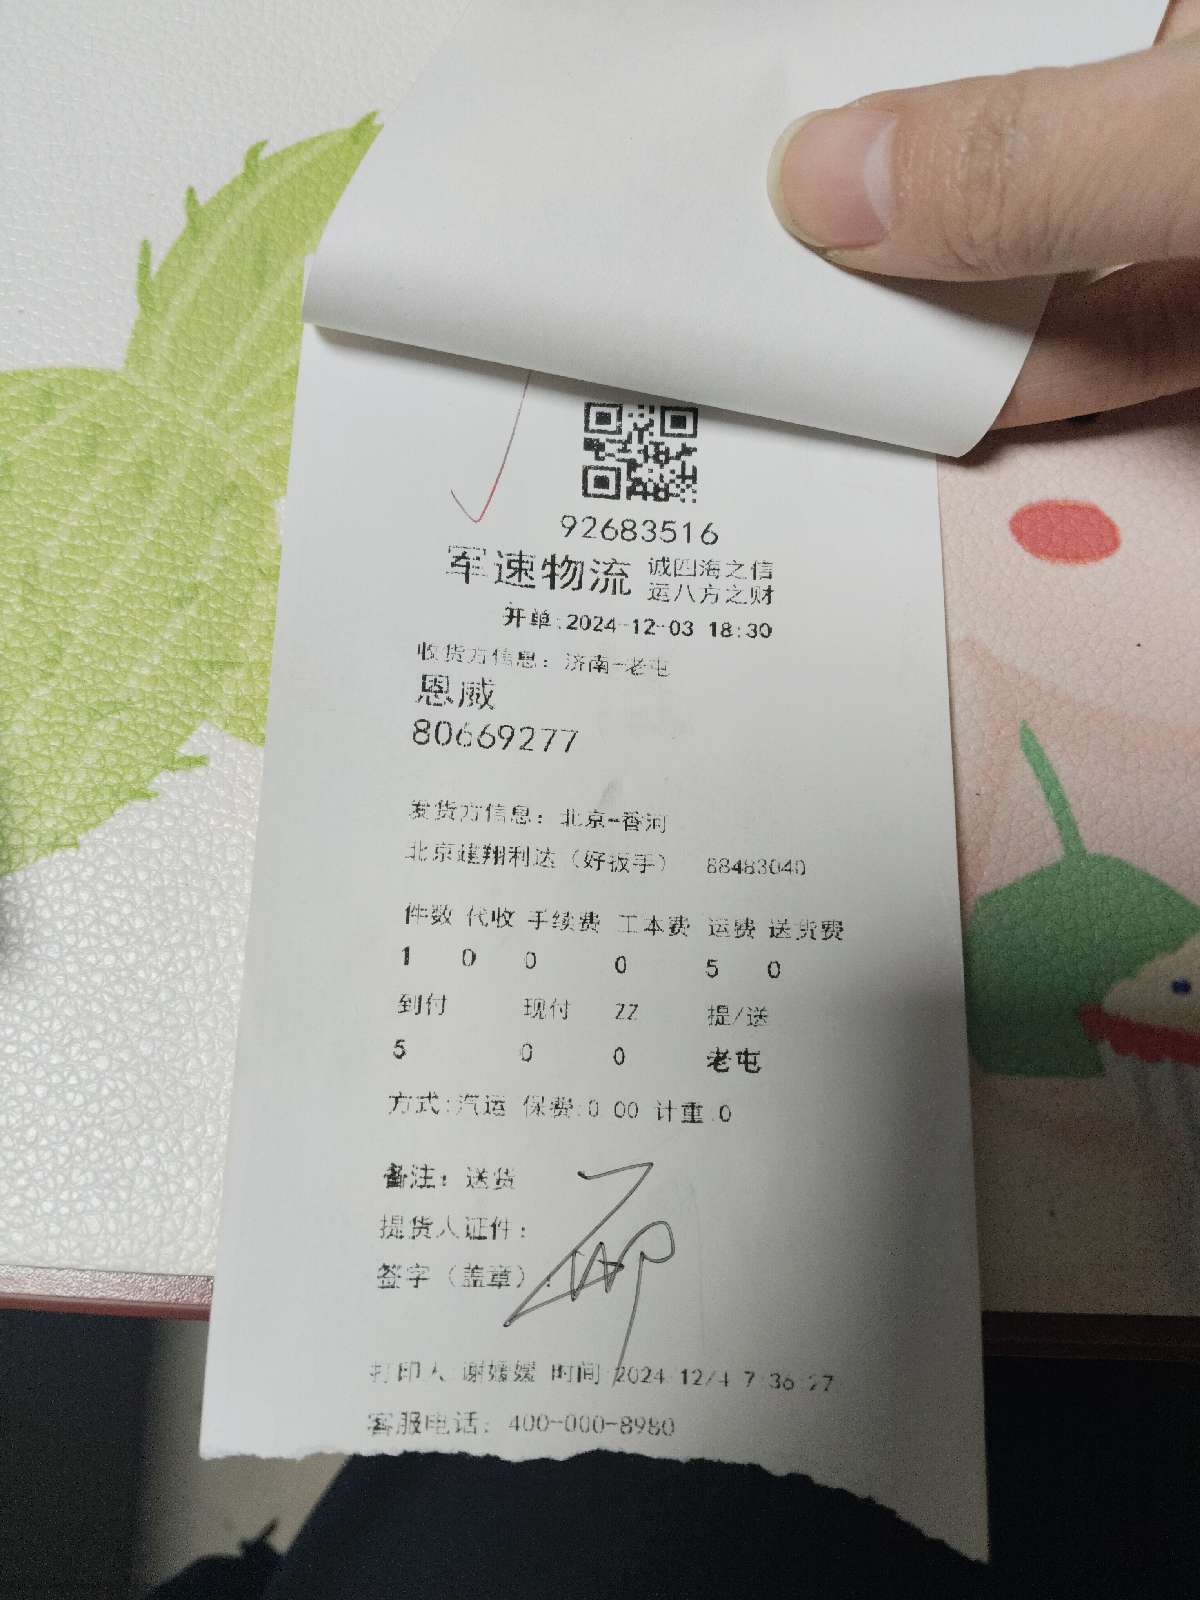 92683516
军速物流 诚四海之信
运八方之财
开单:2024-12-03 18:30
收货方信息：济南-老屯
恩威
80669277
发货方信息：北京-香河
北京建翔利达（好扳手） 88483040
件数 代收 手续费 工本费 运费 送货费
1 0 0 0 5 0
到付 现付 ZZ 提/送
5 0 0 老屯
方式:汽运 保费:0.00 计重:0
备注：送货
提货人证件：
签字（盖章）：
打印人:谢媛媛 时间:2024/12/4 7:36:27
客服电话：400-000-8980